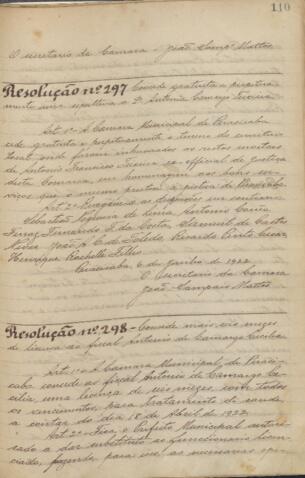 110
O Secretario da Camara João Sampº Mattos
Resolução nº 297 Concede gratuita e perpetua-
mente uma sepultura a D. Antonia
Art. 1º A Camara Municipal de Piracicaba
cede gratuita e perpetuamente o terreno do cemiterio
local onde foram inhumados os restos mortaes
de Antonio Francisco ex-official de justiça
desta Camara, em homenagem aos bons ser-
viços que o mesmo prestou á pobreza de Piracicaba.
Art. 2º Revogam-se as disposições em contrario.
Sebastião Nogueira de Lima, Antonio Corrêa
Ferraz, Fernando F. da Costa, de Castro
Neves, João A. C. de Toledo, Ricardo Pinto Cesar
Henrique Rochelle Filho
Piracicaba, 6 de Junho de 1922
O Secretario da Camara
João Sampaio Mattos
Resolução nº 298 - Concede mais seis mezes
de licença ao fiscal Antonio de Camargo Cecilia
Art. 1º A Camara Municipal de Piraci-
caba concede ao fiscal Antonio de Camargo Ce-
cilia, uma licença de seis mezes, com todos
os vencimentos para tratamento de saude
a contar do dia 18 de Abril de 1922.
Art. 2º Fica o Prefeito Municipal autori-
zado a dar substituto ao funccionario licen-
ciado, fazendo para isso as necessarias ope-